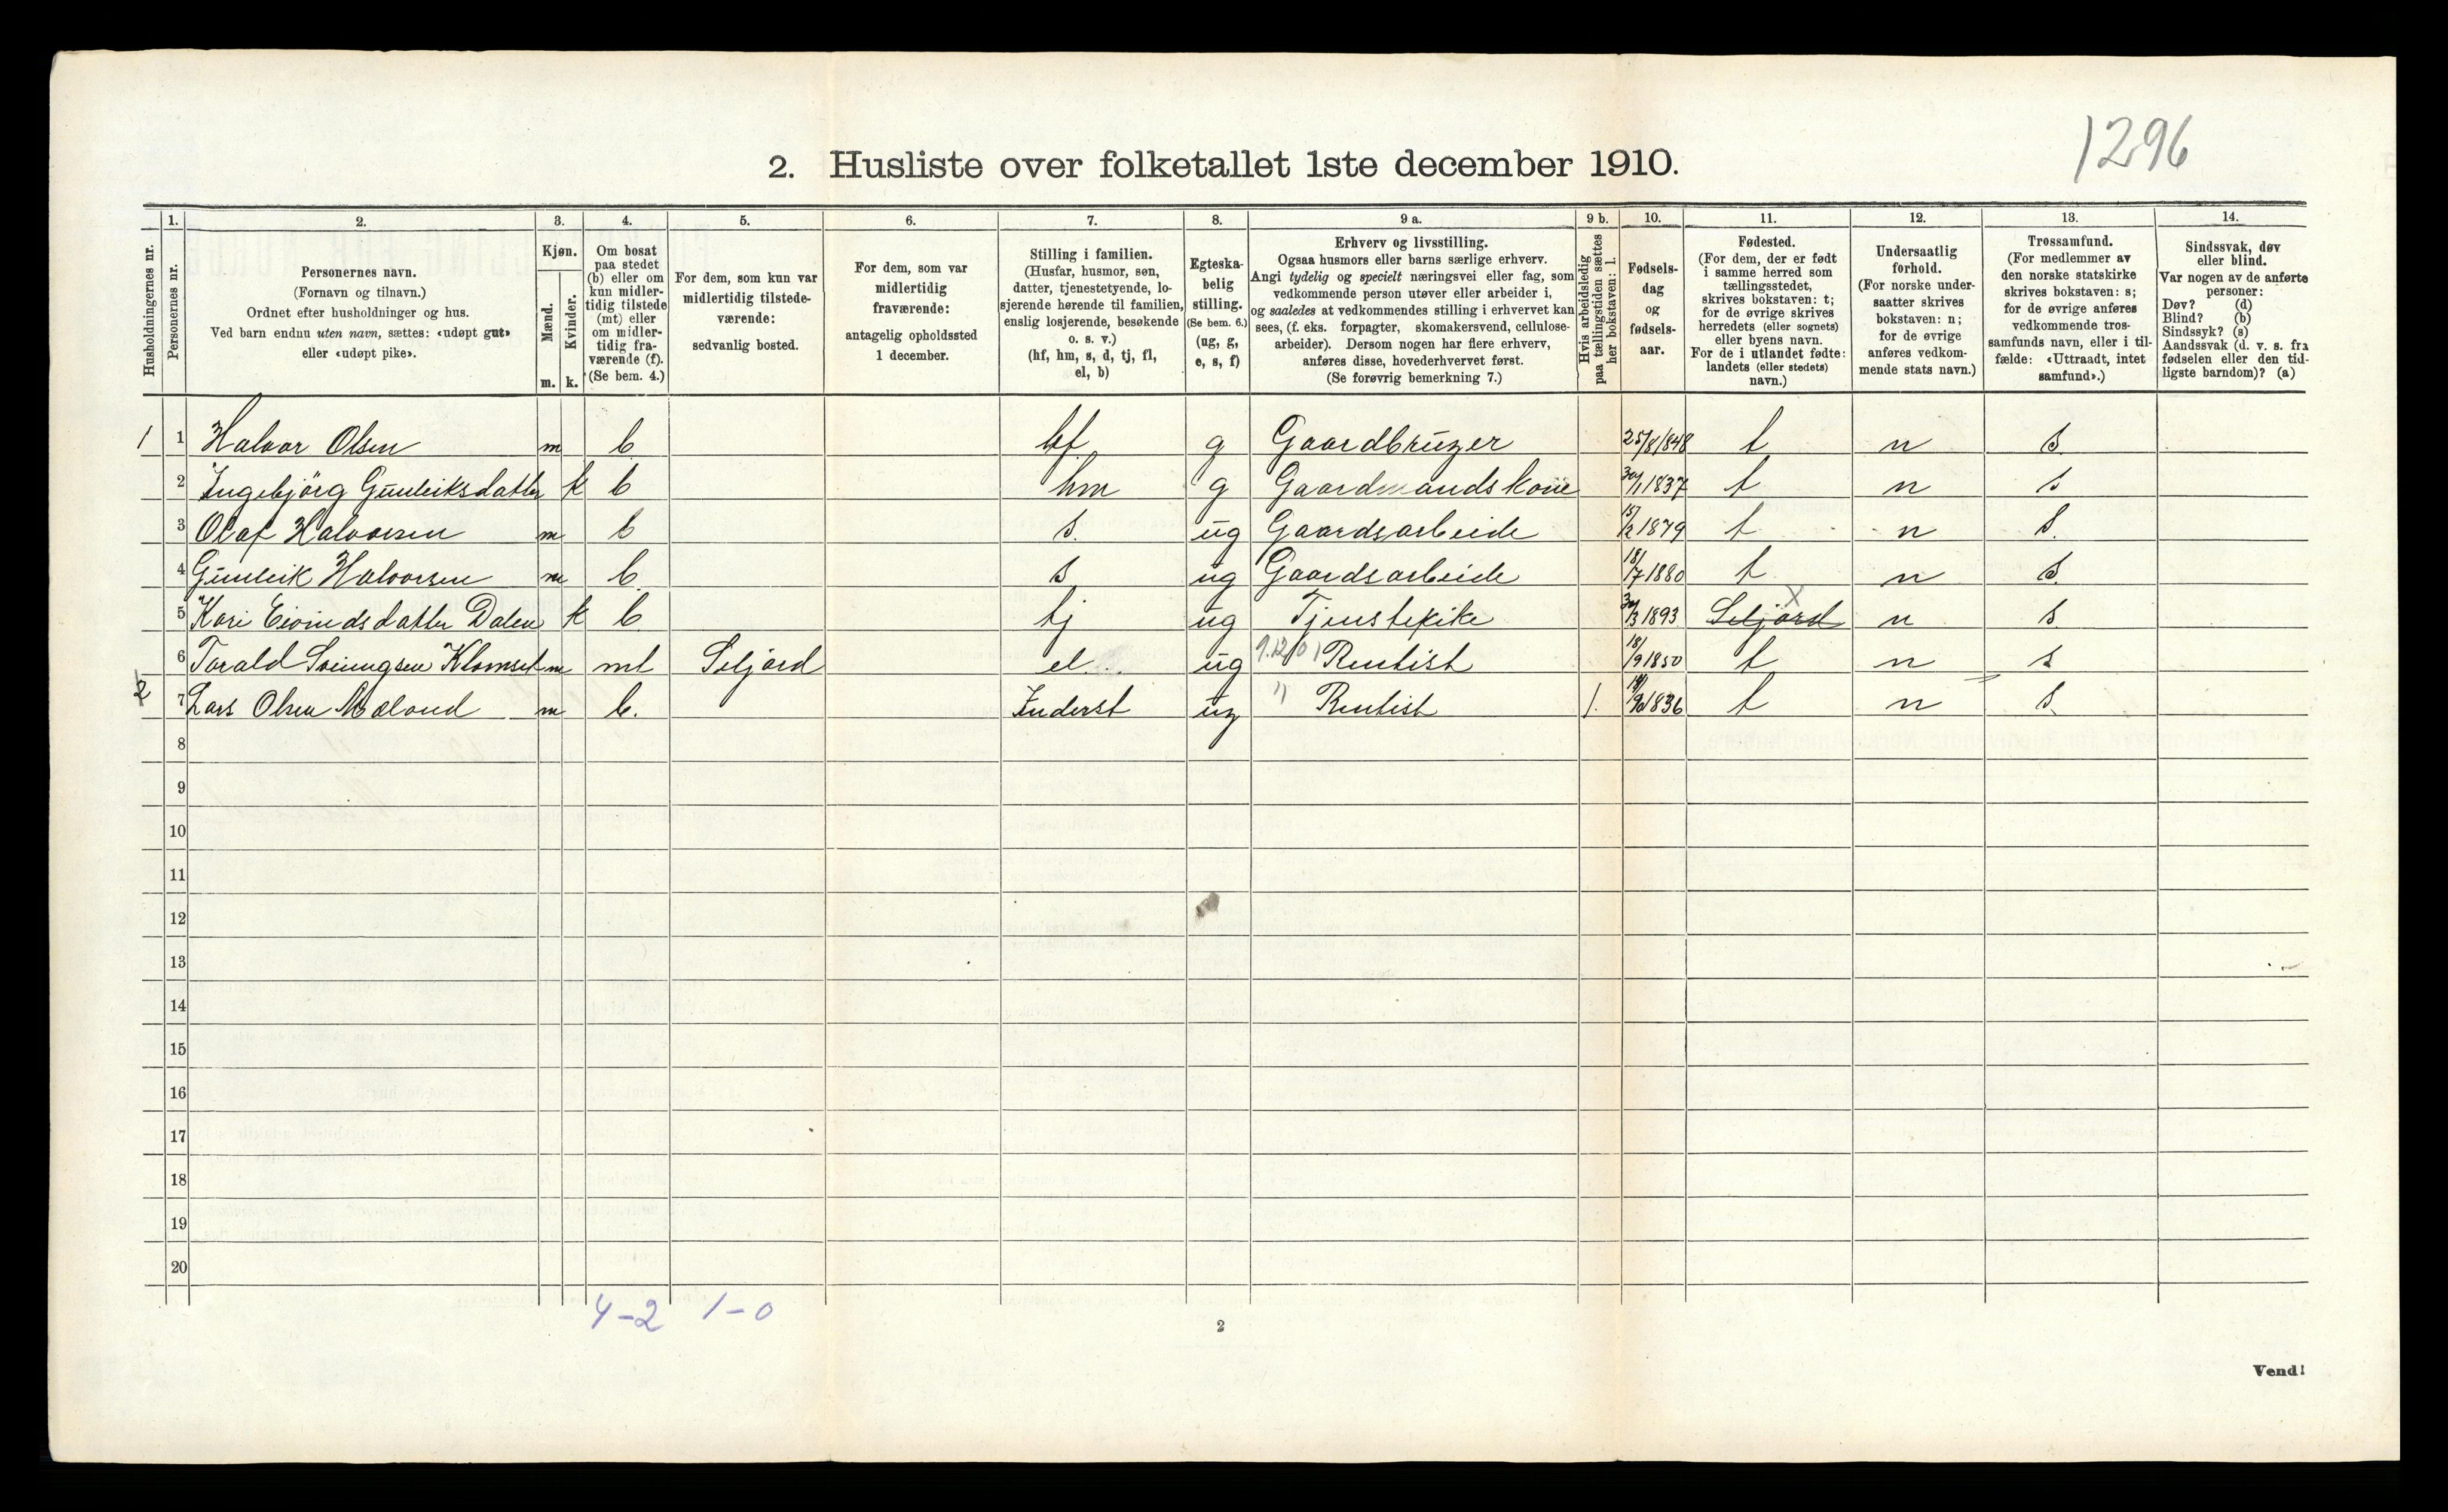 1296
2. Husliste over folketallet 1ste december 1910.
Husholdningernes nr.
1.
Personernes nr.
2.
Personernes navn.
(Fornavn og tilnavn.)
Ordnet efter husholdninger og hus.
Ved barn endnu uten navn, sættes: «udøpt gut»
eller «udøpt pike».
3.
Kjøn.
Mænd.
Kvinder.
m. k.
4.
Om bosat
paa stedet
(b) eller om
kun midler-
tidig tilstede
(mt) eller
om midler-
tidig fra-
værende (f).
(Se bem. 4.)
5.
For dem, som kun var
midlertidig tilstede-
værende:
sedvanlig bosted.
6.
For dem, som var
midlertidig
fraværende:
antagelig opholdssted
1 december.
7.
Stilling i familien.
(Husfar, husmor, søn,
datter, tjenestetyende, lo-
sjerende hørende til familien,
enslig losjerende, besøkende
o. s. v.)
(hf, hm, s, d, tj, fl,
el, b)
8.
Egteska-
belig
stilling.
(Se bem. 6.)
(ug, g,
e, s, f)
9 a.
Erhverv og livsstilling.
Ogsaa husmors eller barns særlige erhverv.
Angi tydelig og specielt næringsvei eller fag, som
vedkommende person utøver eller arbeider i,
og saaledes at vedkommendes stilling i erhvervet kan
sees, (f. eks. forpagter, skomakersvend, cellulose-
arbeider). Dersom nogen har flere erhverv,
anføres disse, hovederhvervet først.
(Se forøvrig bemerkning 7.)
9 b.
Hvis arbeidsledig
paa tællingstiden sættes
her bokstaven: l.
10.
Fødsels-
dag
og
fødsels-
aar.
11.
Fødested.
(For dem, der er født
i samme herred som
tællingsstedet,
skrives bokstaven: t;
for de øvrige skrives
herredets (eller sognets)
eller byens navn.
For de i utlandet fødte:
landets (eller stedets)
navn.)
12.
Undersaatlig
forhold.
(For norske under-
saatter skrives
bokstaven: n;
for de øvrige
anføres vedkom-
mende stats navn.)
13.
Trossamfund.
(For medlemmer av
den norske statskirke
skrives bokstaven: s;
for de øvrige anføres
vedkommende tros-
samfunds navn, eller i til-
fælde: «Uttraadt, intet
samfund».)
14.
Sindssvak, døv
eller blind.
Var nogen av de anførte
personer:
Døv? (d)
Blind? (b)
Sindssyk? (s)
Aandssvak (d. v. s. fra
fødselen eller den tid-
ligste barndom)? (a)
1 1 Halvor Olsen m b hf g Gaardbruger 25/8 1848 t n s
2 Ingebjörg Gunleiksdatter k b hm g Gaardmandskone 30/1 1837 t n s
3 Olaf Halvorsen m b s ug Gaardsarbeide 15/2 1879 t n s
4 Gunleik Halvorsen m b s ug Gaardsarbeide 18/7 1880 t n s
5 Kari Eivindsdatter Dalen k b tj ug Tjenstepike 30/3 1893 Seljord x n s
6 Torald Sveinugsen Klomset m mt Seljord el ug Rentist 18/9 1850 t n s
2 7 Lars Olsen Mæland m b. Inderst ug " Rentist l. 1836 t n s
8
9
10
11
12
13
14
15
16
17
18
19
20
4-2 1-0
2
Vend!